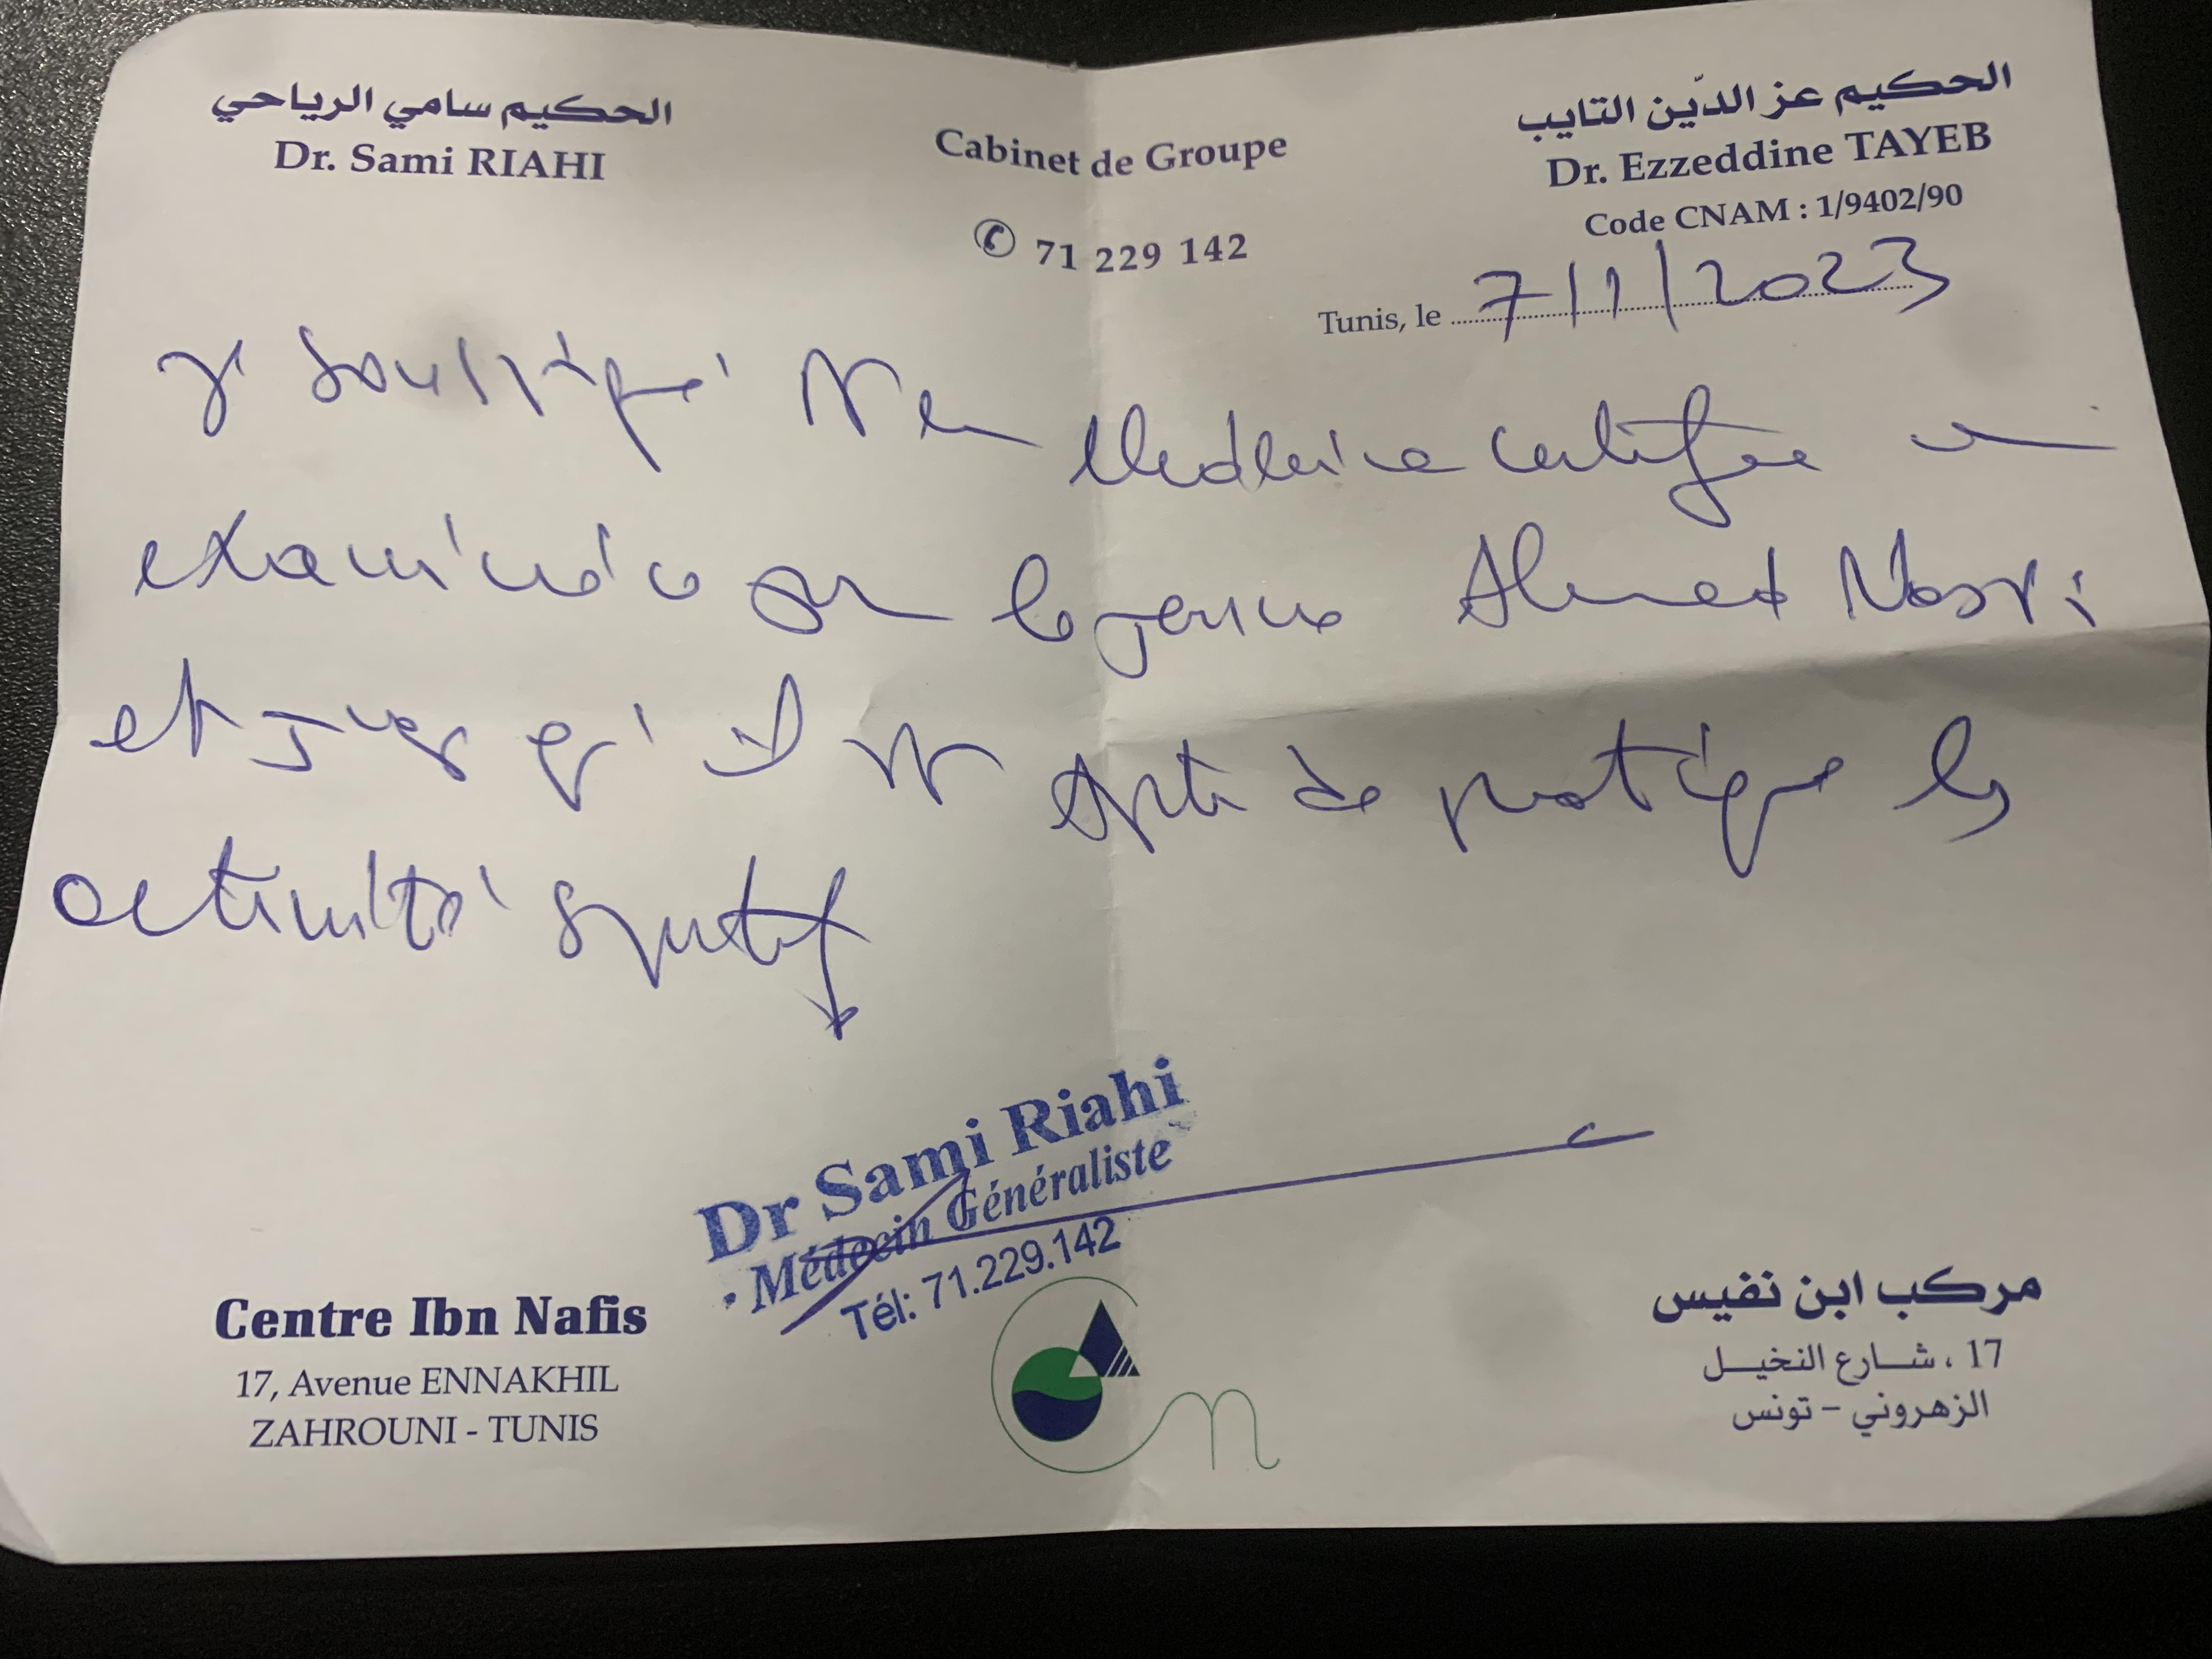 الحكيم سامي الرياحي
Dr. Sami RIAHI
Cabinet de Groupe
✆ 71 229 142
الحكيم عز الدّين التايب
Dr. Ezzeddine TAYEB
Code CNAM : 1/9402/90
Tunis, le 7/1/2023
Je soussigné Dr en Médecine certifie
examiné ce jour le jeune Ahmed Nasri
et juge qu'il est apte de pratique les
activité sportif
Dr Sami Riahi
Médecin Généraliste
Tél: 71.229.142
Centre Ibn Nafis
17, Avenue ENNAKHIL
ZAHROUNI - TUNIS
مركب ابن نفيس
17 ، شارع النخيل
الزهروني - تونس